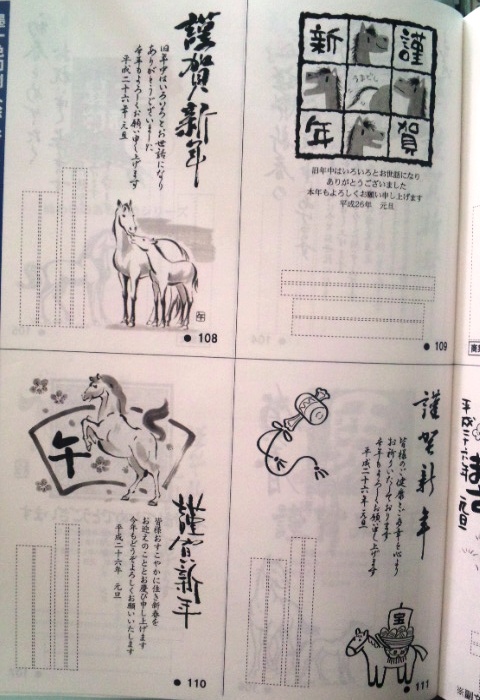 謹賀新年
旧年中はいろいろとお世話になり
ありがとうございました
今年もよろしくお願い申し上げます
平成二十六年 元旦
108
謹
賀
新
年
うまどし
旧年中はいろいろとお世話になり
ありがとうございました
本年もよろしくお願い申し上げます
平成26年 元旦
109
午
謹賀新年
皆様おすこやかに佳き新春を
お迎えのこととお慶び申し上げます
今年もどうぞよろしくお願いいたします
平成二十六年 元旦
110
謹賀新年
皆様のご健康とご多幸を心より
お祈りいたしております
今年もよろしくお願い申し上げます
平成二十六年元旦
宝
111
平成二十六年 元旦